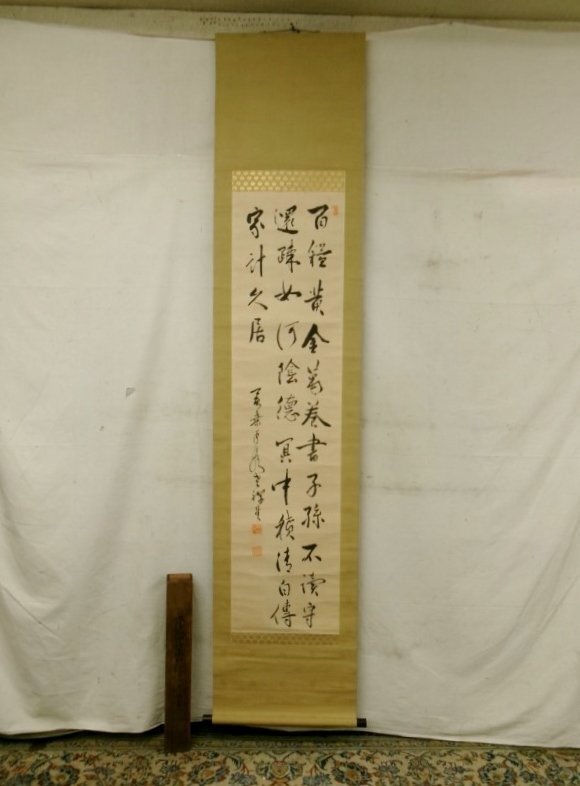 百鎰黄金萬巻書子孫不讀守
還疎如何陰德冥中積清白傳
家計久居